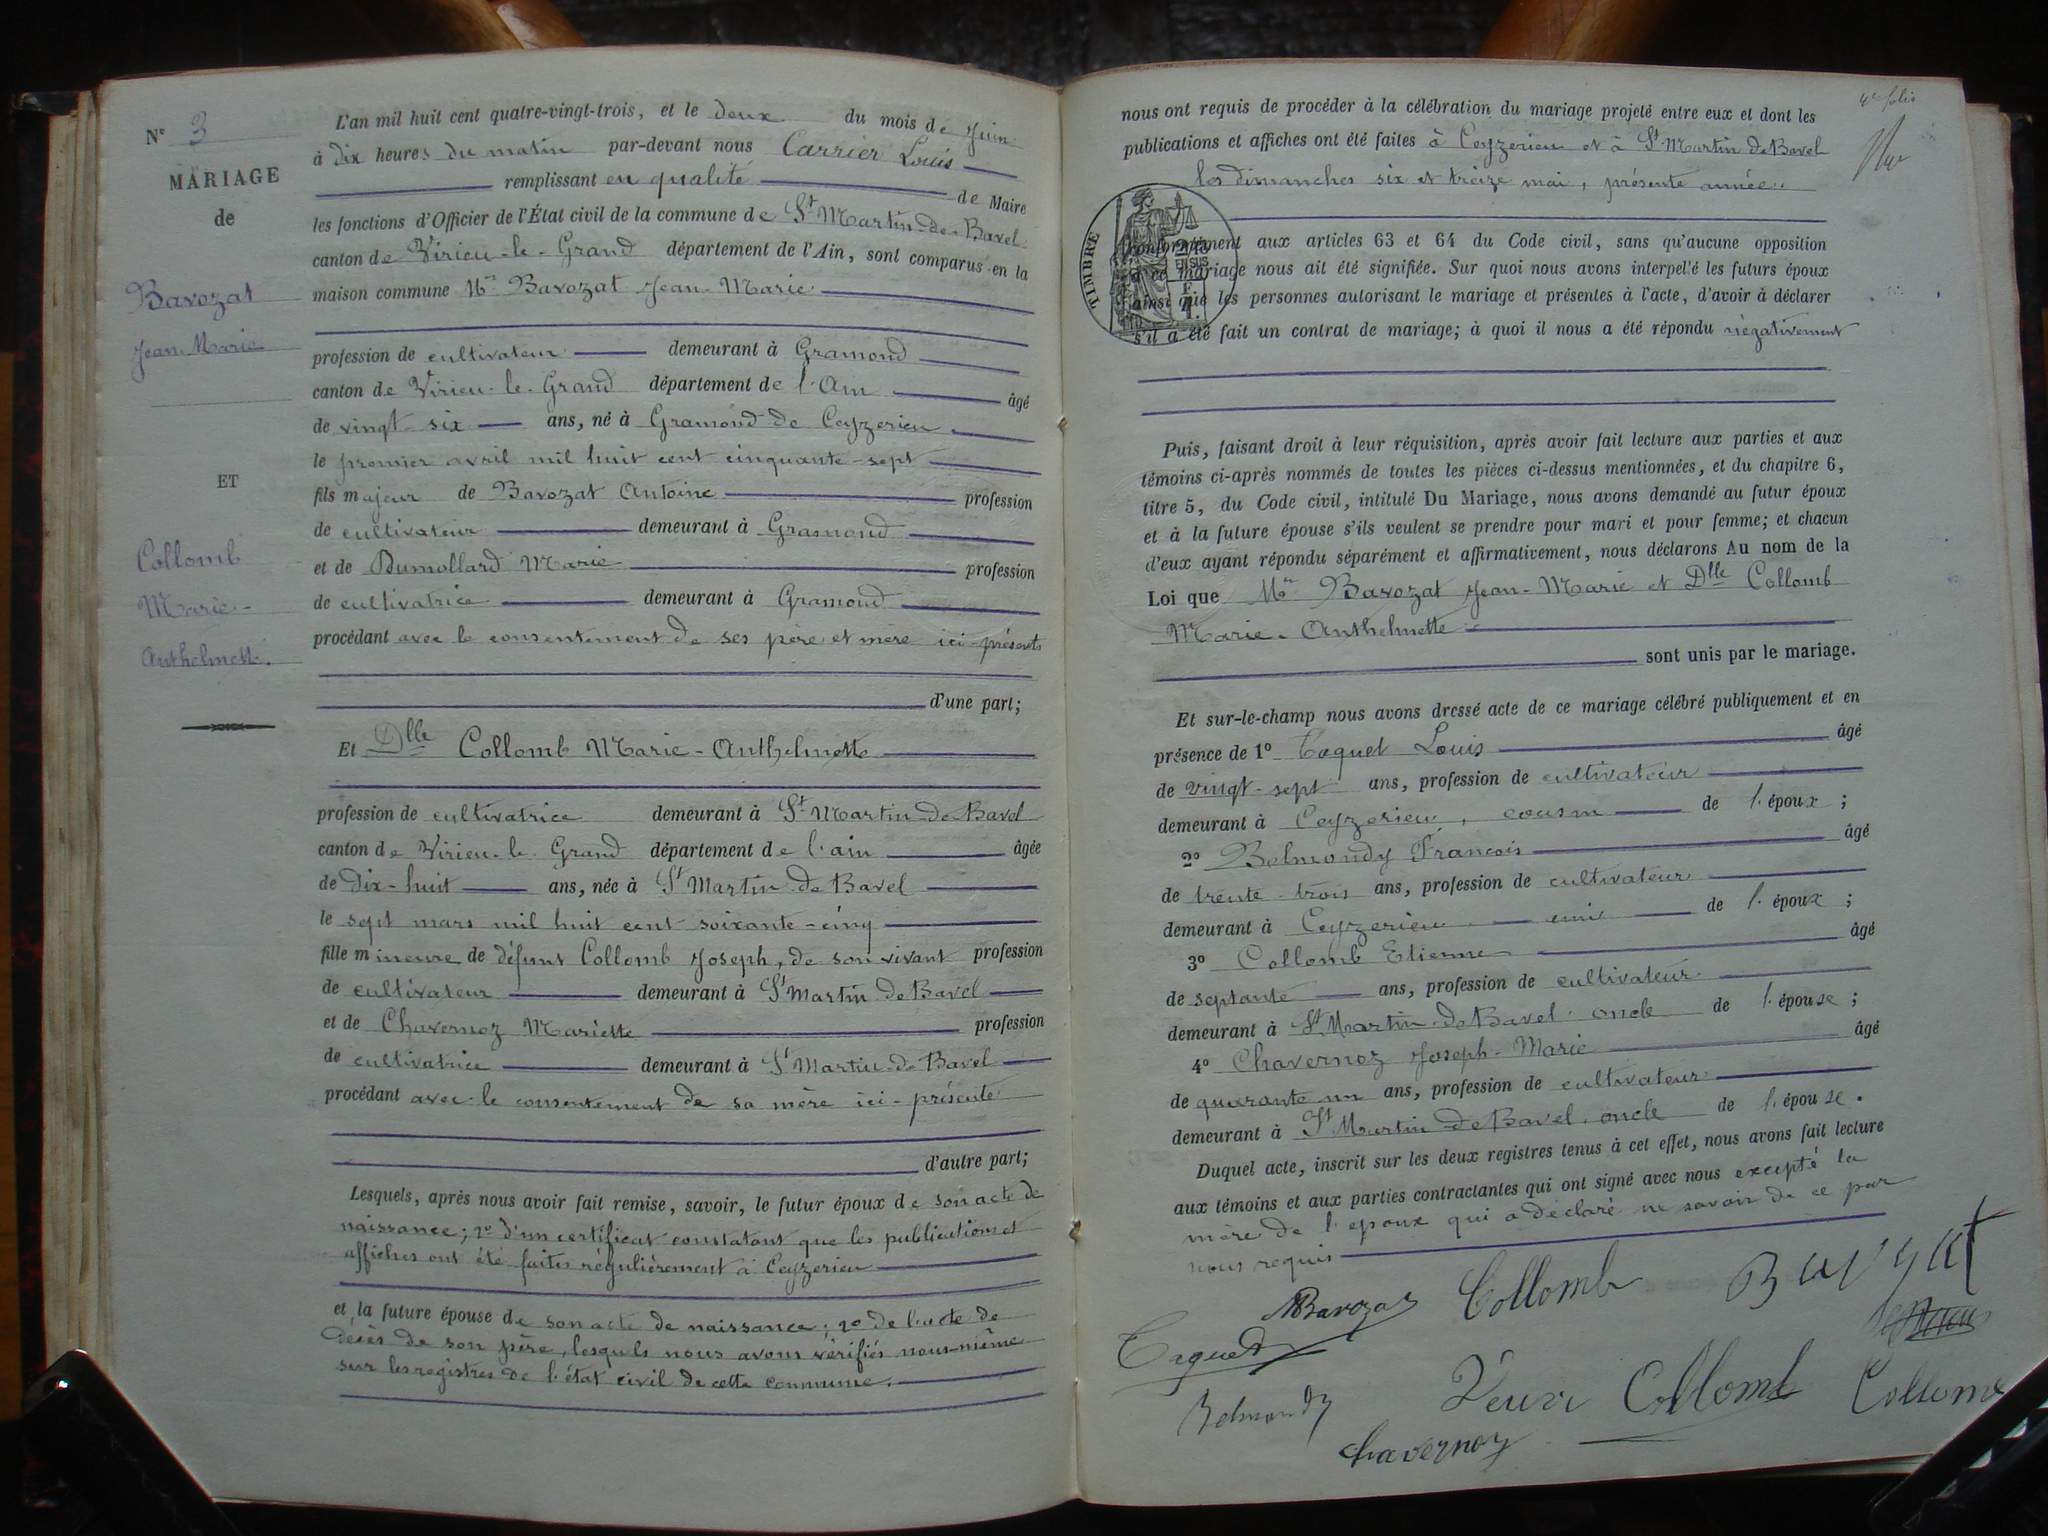 N° 3
MARIAGE
de
Bavozat
Jean-Marie
ET
Collomb
Marie-
Anthelmett.
L'an mil huit cent quatre-vingt-trois, et le deux du mois de Juin
à dix heures du matin par-devant nous Carrier Louis
remplissant en qualité de Maire
les fonctions d'Officier de l'État civil de la commune de St Martin-de-Bavel
canton de Virieu-le-Grand département de l'Ain, sont comparus en la
maison commune Mr Bavozat Jean-Marie
profession de cultivateur demeurant à Gramond
canton de Virieu-le-Grand département de l'Ain âgé
de vingt-six ans, né à Gramond de Ceyzerieu
le premier avril mil huit cent cinquante-sept
fils majeur de Bavozat Antoine profession
de cultivateur demeurant à Gramond
et de Dumollard Marie profession
de cultivatrice demeurant à Gramond
procédant avec le consentement de ses père et mère ici-présents
d'une part;
Et Dlle Collomb Marie-Anthelmette
profession de cultivatrice demeurant à St Martin-de-Bavel
canton de Virieu-le-Grand département de l'ain âgée
de Dix-huit ans, née à St Martin de Bavel
le sept mars mil huit cent soixante-cinq
fille mineure de défunt Collomb Joseph, de son vivant profession
de cultivateur demeurant à St Martin de Bavel
et de Chavernoz Mariette profession
de cultivatrice demeurant à St Martin-de-Bavel
procédant avec le consentement de sa mère ici-présente
d'autre part;
Lesquels, après nous avoir fait remise, savoir, le futur époux de son acte de
naissance; 2° d'un certificat constatant que les publications et
affiches ont été faites régulièrement à Ceyzerieu
et la future épouse de son acte de naissance; 2° de l'acte de
décès de son père, lesquels nous avons vérifiés nous-même
sur les registres de l'état civil de cette commune.
4me folio
nous ont requis de procéder à la célébration du mariage projeté entre eux et dont les
publications et affiches ont été faites à Ceyzerieu et à St Martin de Bavel
les dimanches six et treize mai, présente année.
TIMBRE
2/10
EN SUS
F.
1.
conformément aux articles 63 et 64 du Code civil, sans qu'aucune opposition
à ce mariage nous ait été signifiée. Sur quoi nous avons interpellé les futurs époux
ainsi que les personnes autorisant le mariage et présentes à l'acte, d'avoir à déclarer
s'il a été fait un contrat de mariage; à quoi il nous a été répondu négativement
Puis, faisant droit à leur réquisition, après avoir fait lecture aux parties et aux
témoins ci-après nommés de toutes les pièces ci-dessus mentionnées, et du chapitre 6,
titre 5, du Code civil, intitulé Du Mariage, nous avons demandé au futur époux
et à la future épouse s'ils veulent se prendre pour mari et pour femme; et chacun
d'eux ayant répondu séparément et affirmativement, nous déclarons Au nom de la
Loi que Mr Bavozat Jean-Marie et Dlle Collomb
Marie-Anthelmette
sont unis par le mariage.
Et sur-le-champ nous avons dressé acte de ce mariage célébré publiquement et en
présence de 1° Taquet Louis âgé
de vingt-sept ans, profession de cultivateur
demeurant à Ceyzerieu, cousin de l'époux;
2° Belmondy François âgé
de trente-trois ans, profession de cultivateur
demeurant à Ceyzerieu ami de l'époux;
3° Collomb Etienne âgé
de septante ans, profession de cultivateur
demeurant à St Martin-de-Bavel. oncle de l'épouse;
4° Chavernoz Joseph-Marie âgé
de quarante un ans, profession de cultivateur
demeurant à St Martin-de-Bavel. oncle de l'épouse.
Duquel acte, inscrit sur les deux registres tenus à cet effet, nous avons fait lecture
aux témoins et aux parties contractantes qui ont signé avec nous excepté la
mère de l'époux qui a déclaré ne savoir de ce par
nous requis
Bavozat Collomb Bavozat
Taquet
Belmondy Veuve Collomb Collomb
Chavernoz